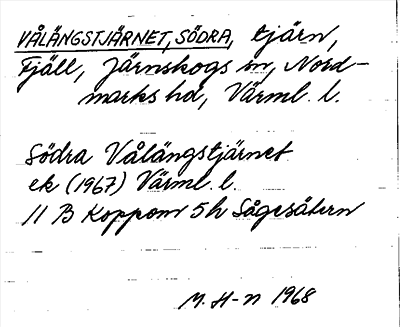 VÅLÄNGSTJÄRNET, SÖDRA, tjärn,
Fjäll, Järnskogs sn, Nord-
marks hd, Värml. l.
Södra Vålängstjärnet
ek (1967) Värml. l.
11 B Koppom 5h Sågesätern
M. H-n 1968